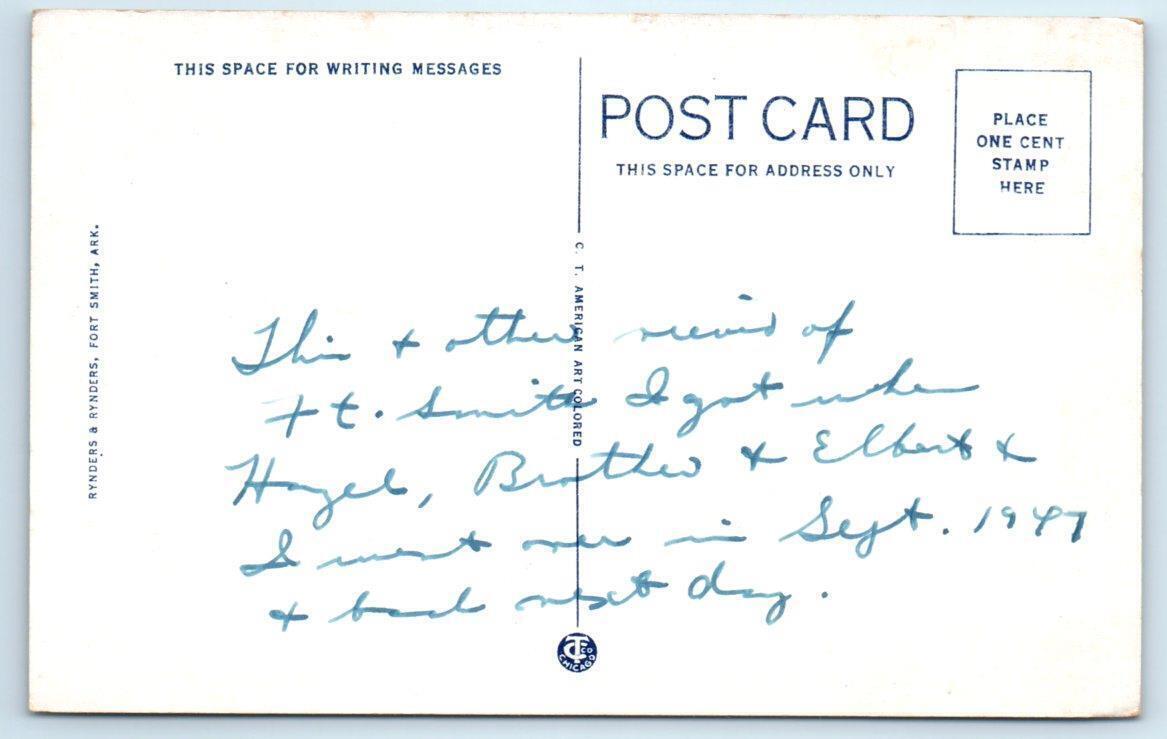 THIS SPACE FOR WRITING MESSAGES
POST CARD
THIS SPACE FOR ADDRESS ONLY
PLACE
ONE CENT
STAMP
HERE
RYNDERS & RYNDERS, FORT SMITH, ARK.
C. T. AMERICAN ART COLORED
This + other views of
Ft. Smith I got when
Hazel, Brother + Elbert +
I went over in Sept. 1947
+ back next day.
CT CO
CHICAGO